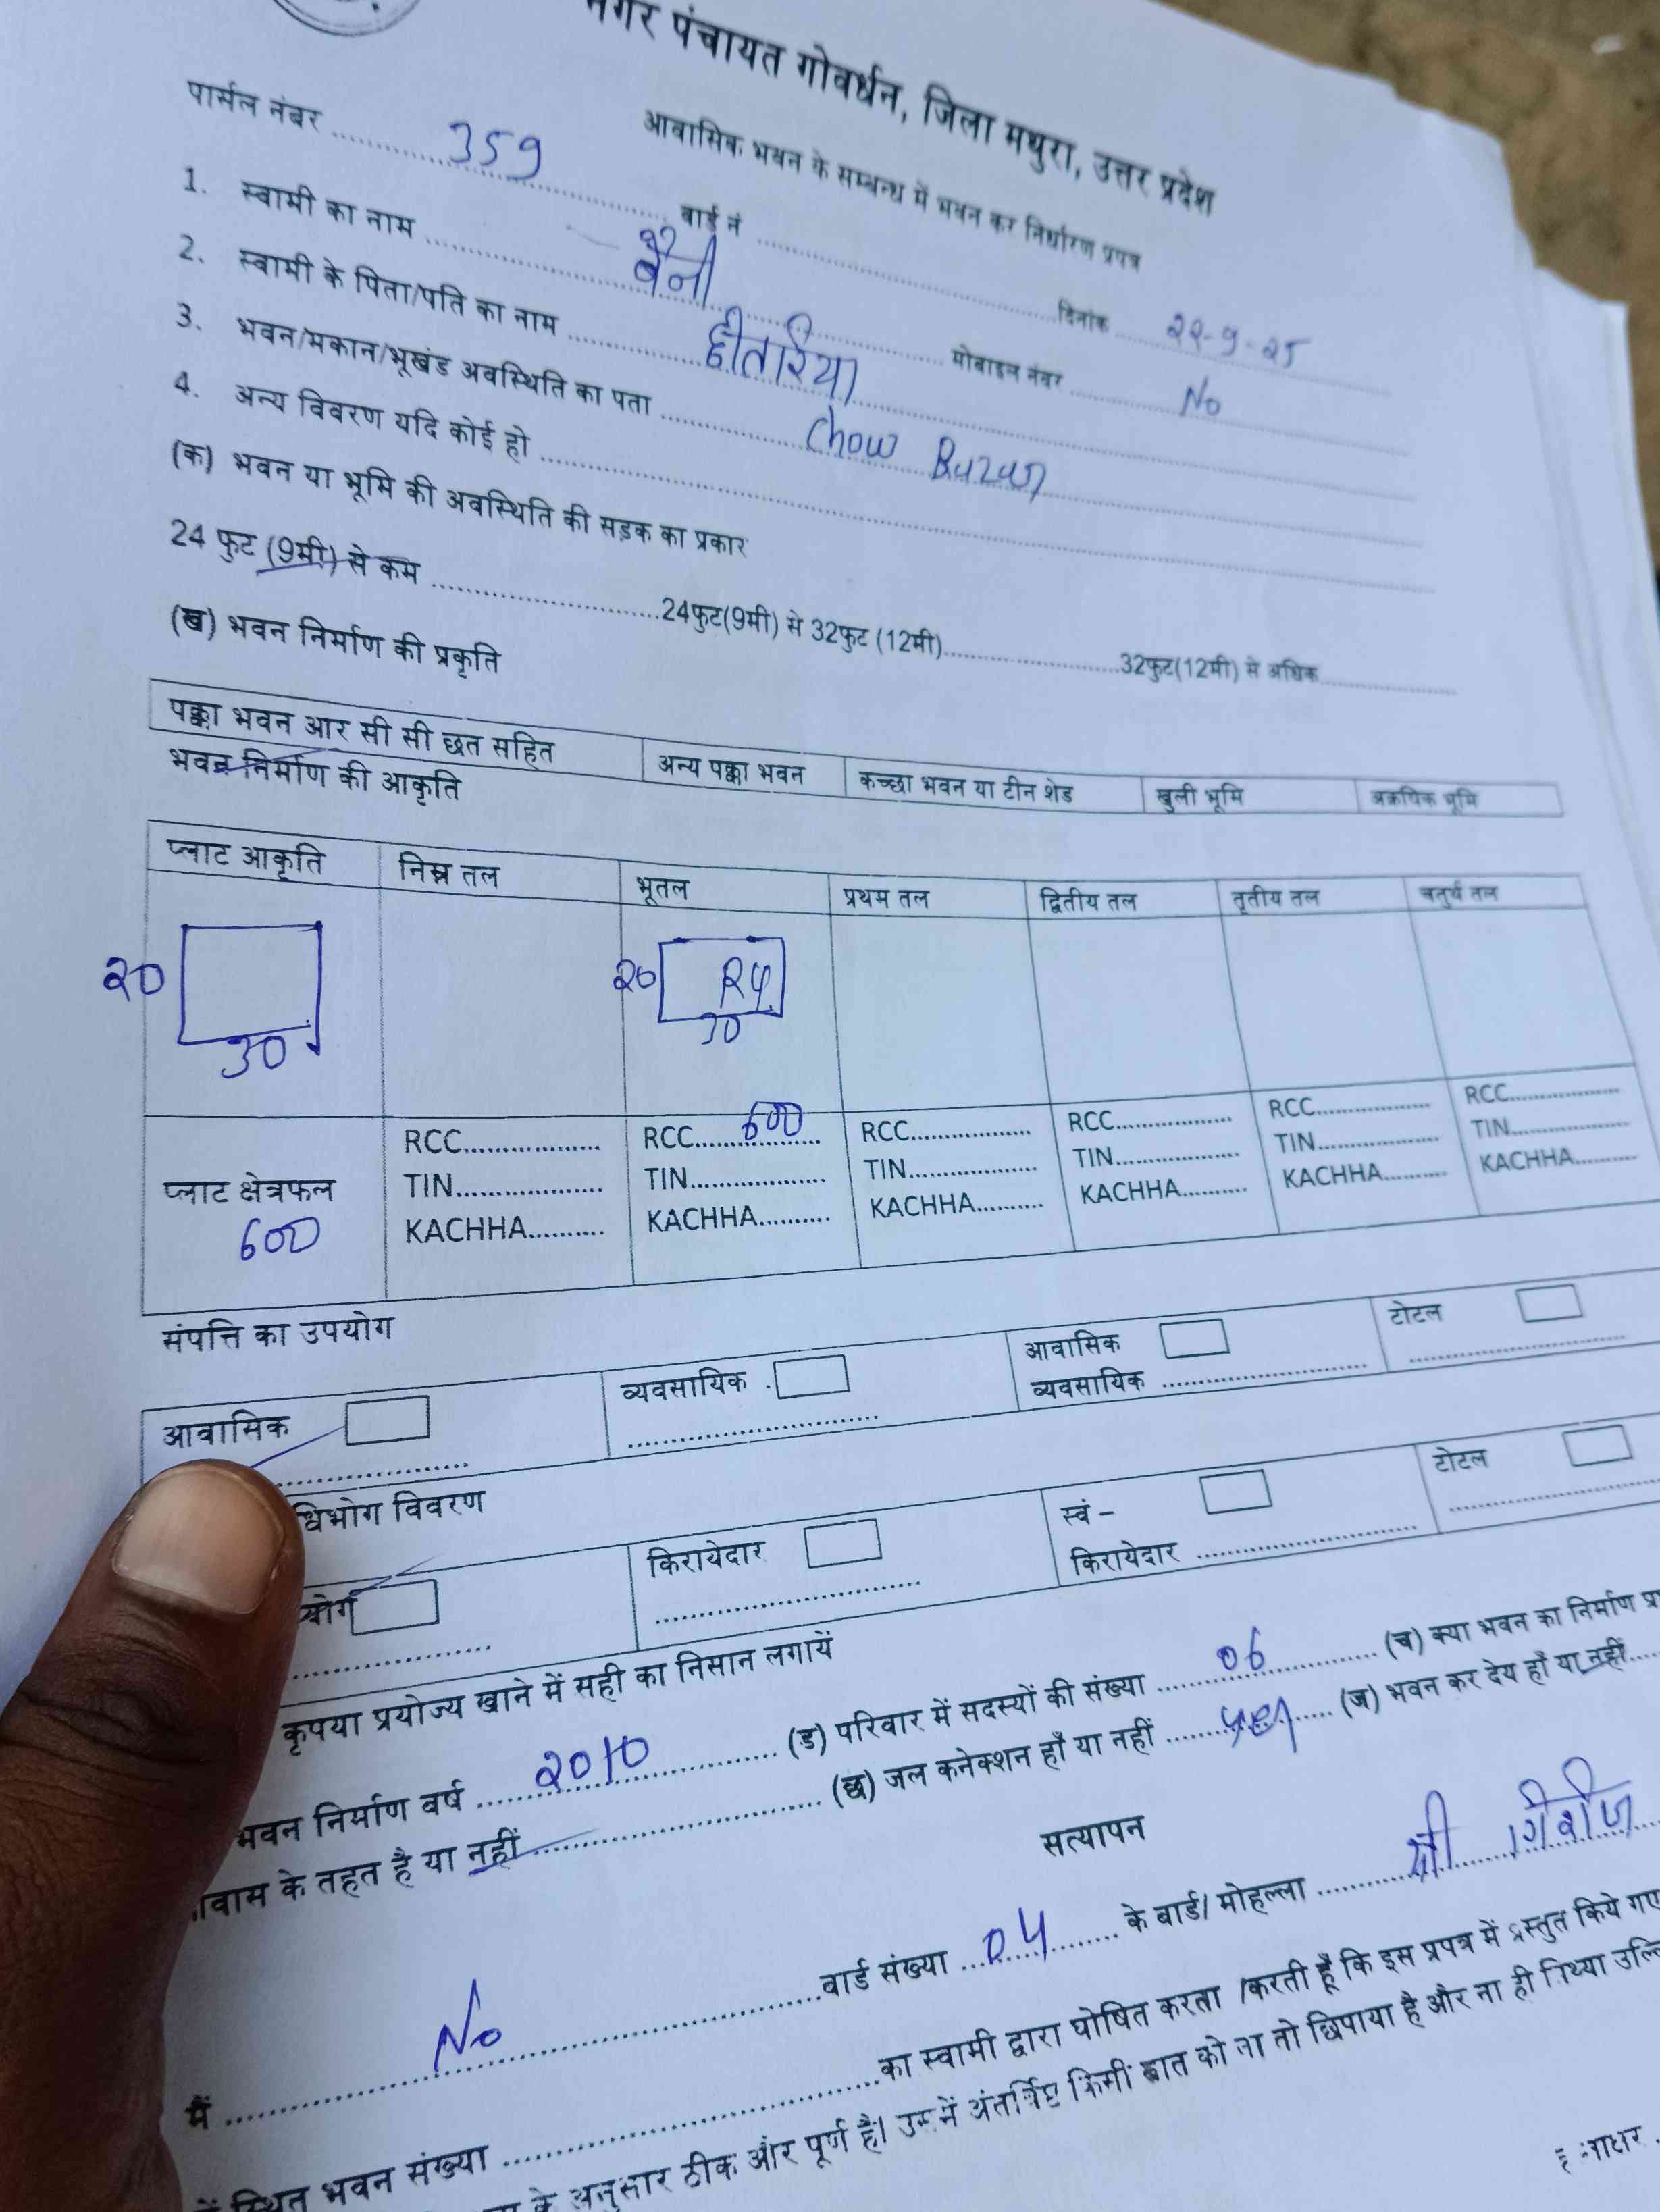 नगर पंचायत गोवर्धन, जिला मथुरा, उत्तर प्रदेश
आवासिक भवन के सम्बन्ध में भवन कर निर्धारण प्रपत्र
पार्सल नंबर ........ 359 ........ वार्ड नं ........ दिनांक ........ २२-9-२5
1. स्वामी का नाम ........ बैनी ........ मोबाइल नंबर ........ No
2. स्वामी के पिता/पति का नाम ........ छीतरिया
3. भवन/मकान/भूखंड अवस्थिति का पता ........ Chow Bazar
4. अन्य विवरण यदि कोई हो ........
(क) भवन या भूमि की अवस्थिति की सड़क का प्रकार
24 फुट (9मी) से कम ........ 24फुट(9मी) से 32फुट (12मी)........ 32फुट(12मी) से अधिक........
(ख) भवन निर्माण की प्रकृति
पक्का भवन आर सी सी छत सहित अन्य पक्का भवन कच्छा भवन या टीन शेड खुली भूमि
भवन निर्माण की आकृति
प्लाट आकृति निम्न तल भूतल प्रथम तल द्वितीय तल तृतीय तल चतुर्थ तल
२० २०
30 30
RCC........ RCC........600 RCC........ RCC........ RCC........ RCC........
प्लाट क्षेत्रफल TIN........ TIN........ TIN........ TIN........ TIN........ TIN........
600 KACHHA........ KACHHA........ KACHHA........ KACHHA........ KACHHA........ KACHHA........
संपत्ति का उपयोग
आवासिक व्यवसायिक . आवासिक व्यवसायिक ........ टोटल
धिभोग विवरण
योग किरायेदार स्वं – किरायेदार ........ टोटल
कृपया प्रयोज्य खाने में सही का निसान लगायें
भवन निर्माण वर्ष ........ २010 ........ (ड) परिवार में सदस्यों की संख्या ........ 06 ........ (च) क्या भवन का निर्माण प्र
वास के तहत है या नहीं ........ (छ) जल कनेक्शन हाँ या नहीं ........ yes ........ (ज) भवन कर देय हाँ या नहीं........
सत्यापन
मैं ........ No ........ वार्ड संख्या ...04... के वार्ड/ मोहल्ला ........ श्री गिर्राज
में स्थित भवन संख्या ........ का स्वामी द्वारा घोषित करता /करती हूँ कि इस प्रपत्र में प्रस्तुत किये गए
के अनुसार ठीक और पूर्ण है। उसमें अंतर्विष्ट किसी बात को ना तो छिपाया है और ना ही मिथ्या